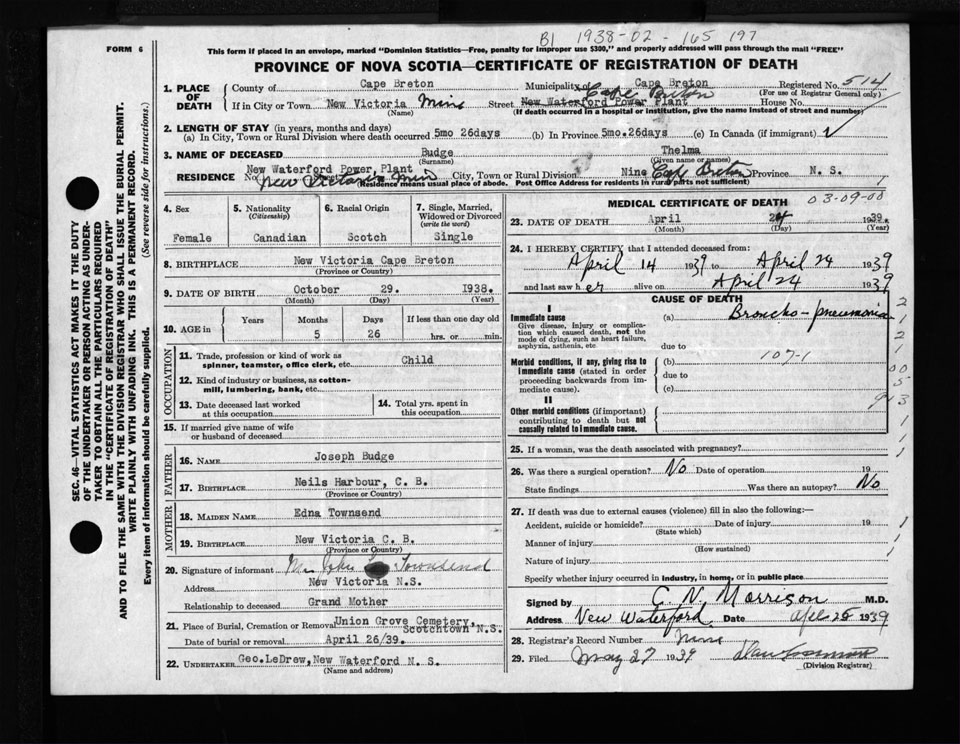 B1 1938-02-165 197
FORM 6
This form if placed in an envelope, marked "Dominion Statistics—Free, penalty for improper use $300," and properly addressed will pass through the mail "FREE"
PROVINCE OF NOVA SCOTIA—CERTIFICATE OF REGISTRATION OF DEATH
1. PLACE OF DEATH
County of Cape Breton Municipality of Cape Breton Registered No. 514
Cape Breton (For use of Registrar General only)
If in City or Town New Victoria Mine Street New Waterford Power Plant House No.
(Name) (If death occurred in a hospital or institution, give the name instead of street and number)
2. LENGTH OF STAY (in years, months and days)
(a) In City, Town or Rural Division where death occurred 5mo 26days (b) In Province 5mo.26days (c) In Canada (if immigrant)
3. NAME OF DECEASED Budge Thelma
(Surname) (Given name or names)
RESIDENCE New Waterford Power Plant
No. New Victoria Mine City, Town or Rural Division Nine Cape Breton Province N. S.
Residence means usual place of abode. Post Office Address for residents in rural parts not sufficient) 1
4. Sex
Female
5. Nationality
(Citizenship)
Canadian
6. Racial Origin
Scotch
7. Single, Married, Widowed or Divorced
(write the word)
Single
8. BIRTHPLACE New Victoria Cape Breton
(Province or Country)
9. DATE OF BIRTH October 29. 1938.
(Month) (Day) (Year)
10. AGE in Years Months Days If less than one day old
5 26 hrs. or min.
OCCUPATION
11. Trade, profession or kind of work as
spinner, teamster, office clerk, etc. Child
12. Kind of industry or business, as cotton-
mill, lumbering, bank, etc.
13. Date deceased last worked
at this occupation
14. Total yrs. spent in
this occupation
15. If married give name of wife
or husband of deceased
FATHER
16. NAME Joseph Budge
17. BIRTHPLACE Neils Harbour, C. B.
(Province or Country)
MOTHER
18. MAIDEN NAME Edna Townsend
19. BIRTHPLACE New Victoria C. B.
(Province or Country)
20. Signature of informant Mrs John Townsend
Address New Victoria N.S.
Relationship to deceased Grand Mother
21. Place of Burial, Cremation or Removal Union Grove Cemetery,
Scotchtown N.S.
Date of burial or removal April 26/39.
22. UNDERTAKER Geo.LeDrew,New Waterford N. S.
(Name and address)
MEDICAL CERTIFICATE OF DEATH 03-09-00
23. DATE OF DEATH April 24 1939.
(Month) (Day) (Year)
24. I HEREBY CERTIFY that I attended deceased from:
April 14 1939 to April 24 1939
and last saw her alive on April 24 1939
CAUSE OF DEATH
I
Immediate cause (a) Broncho-pneumonia
Give disease, injury or complica-
tion which caused death, not the
mode of dying, such as heart failure,
asphyxia, asthenia, etc.
due to
Morbid conditions, if any, giving rise to
immediate cause (stated in order
proceeding backwards from im-
mediate cause).
(b) 107-1
due to
(c)
II
Other morbid conditions (if important)
contributing to death but not
causally related to immediate cause.
2
1
2
1
00
5
913
1
1
25. If a woman, was the death associated with pregnancy?
26. Was there a surgical operation? No Date of operation 19
State findings Was there an autopsy? No
27. If death was due to external causes (violence) fill in also the following:—
Accident, suicide or homicide? Date of injury 19 1
(State which)
Manner of injury 1
(How sustained)
Nature of injury
Specify whether injury occurred in industry, in home, or in public place
Signed by C. N. Morrison M.D.
Address New Waterford Date Apl 25 1939
28. Registrar's Record Number Nine
29. Filed May 27 1939
(Division Registrar)
SEC. 46—VITAL STATISTICS ACT MAKES IT THE DUTY
OF THE UNDERTAKER OR PERSON ACTING AS UNDER-
TAKER TO OBTAIN ALL THE PARTICULARS REQUIRED
IN THE "CERTIFICATE OF REGISTRATION OF DEATH"
AND TO FILE THE SAME WITH THE DIVISION REGISTRAR WHO SHALL ISSUE THE BURIAL PERMIT.
WRITE PLAINLY WITH UNFADING INK. THIS IS A PERMANENT RECORD.
Every item of information should be carefully supplied. (See reverse side for instructions.)